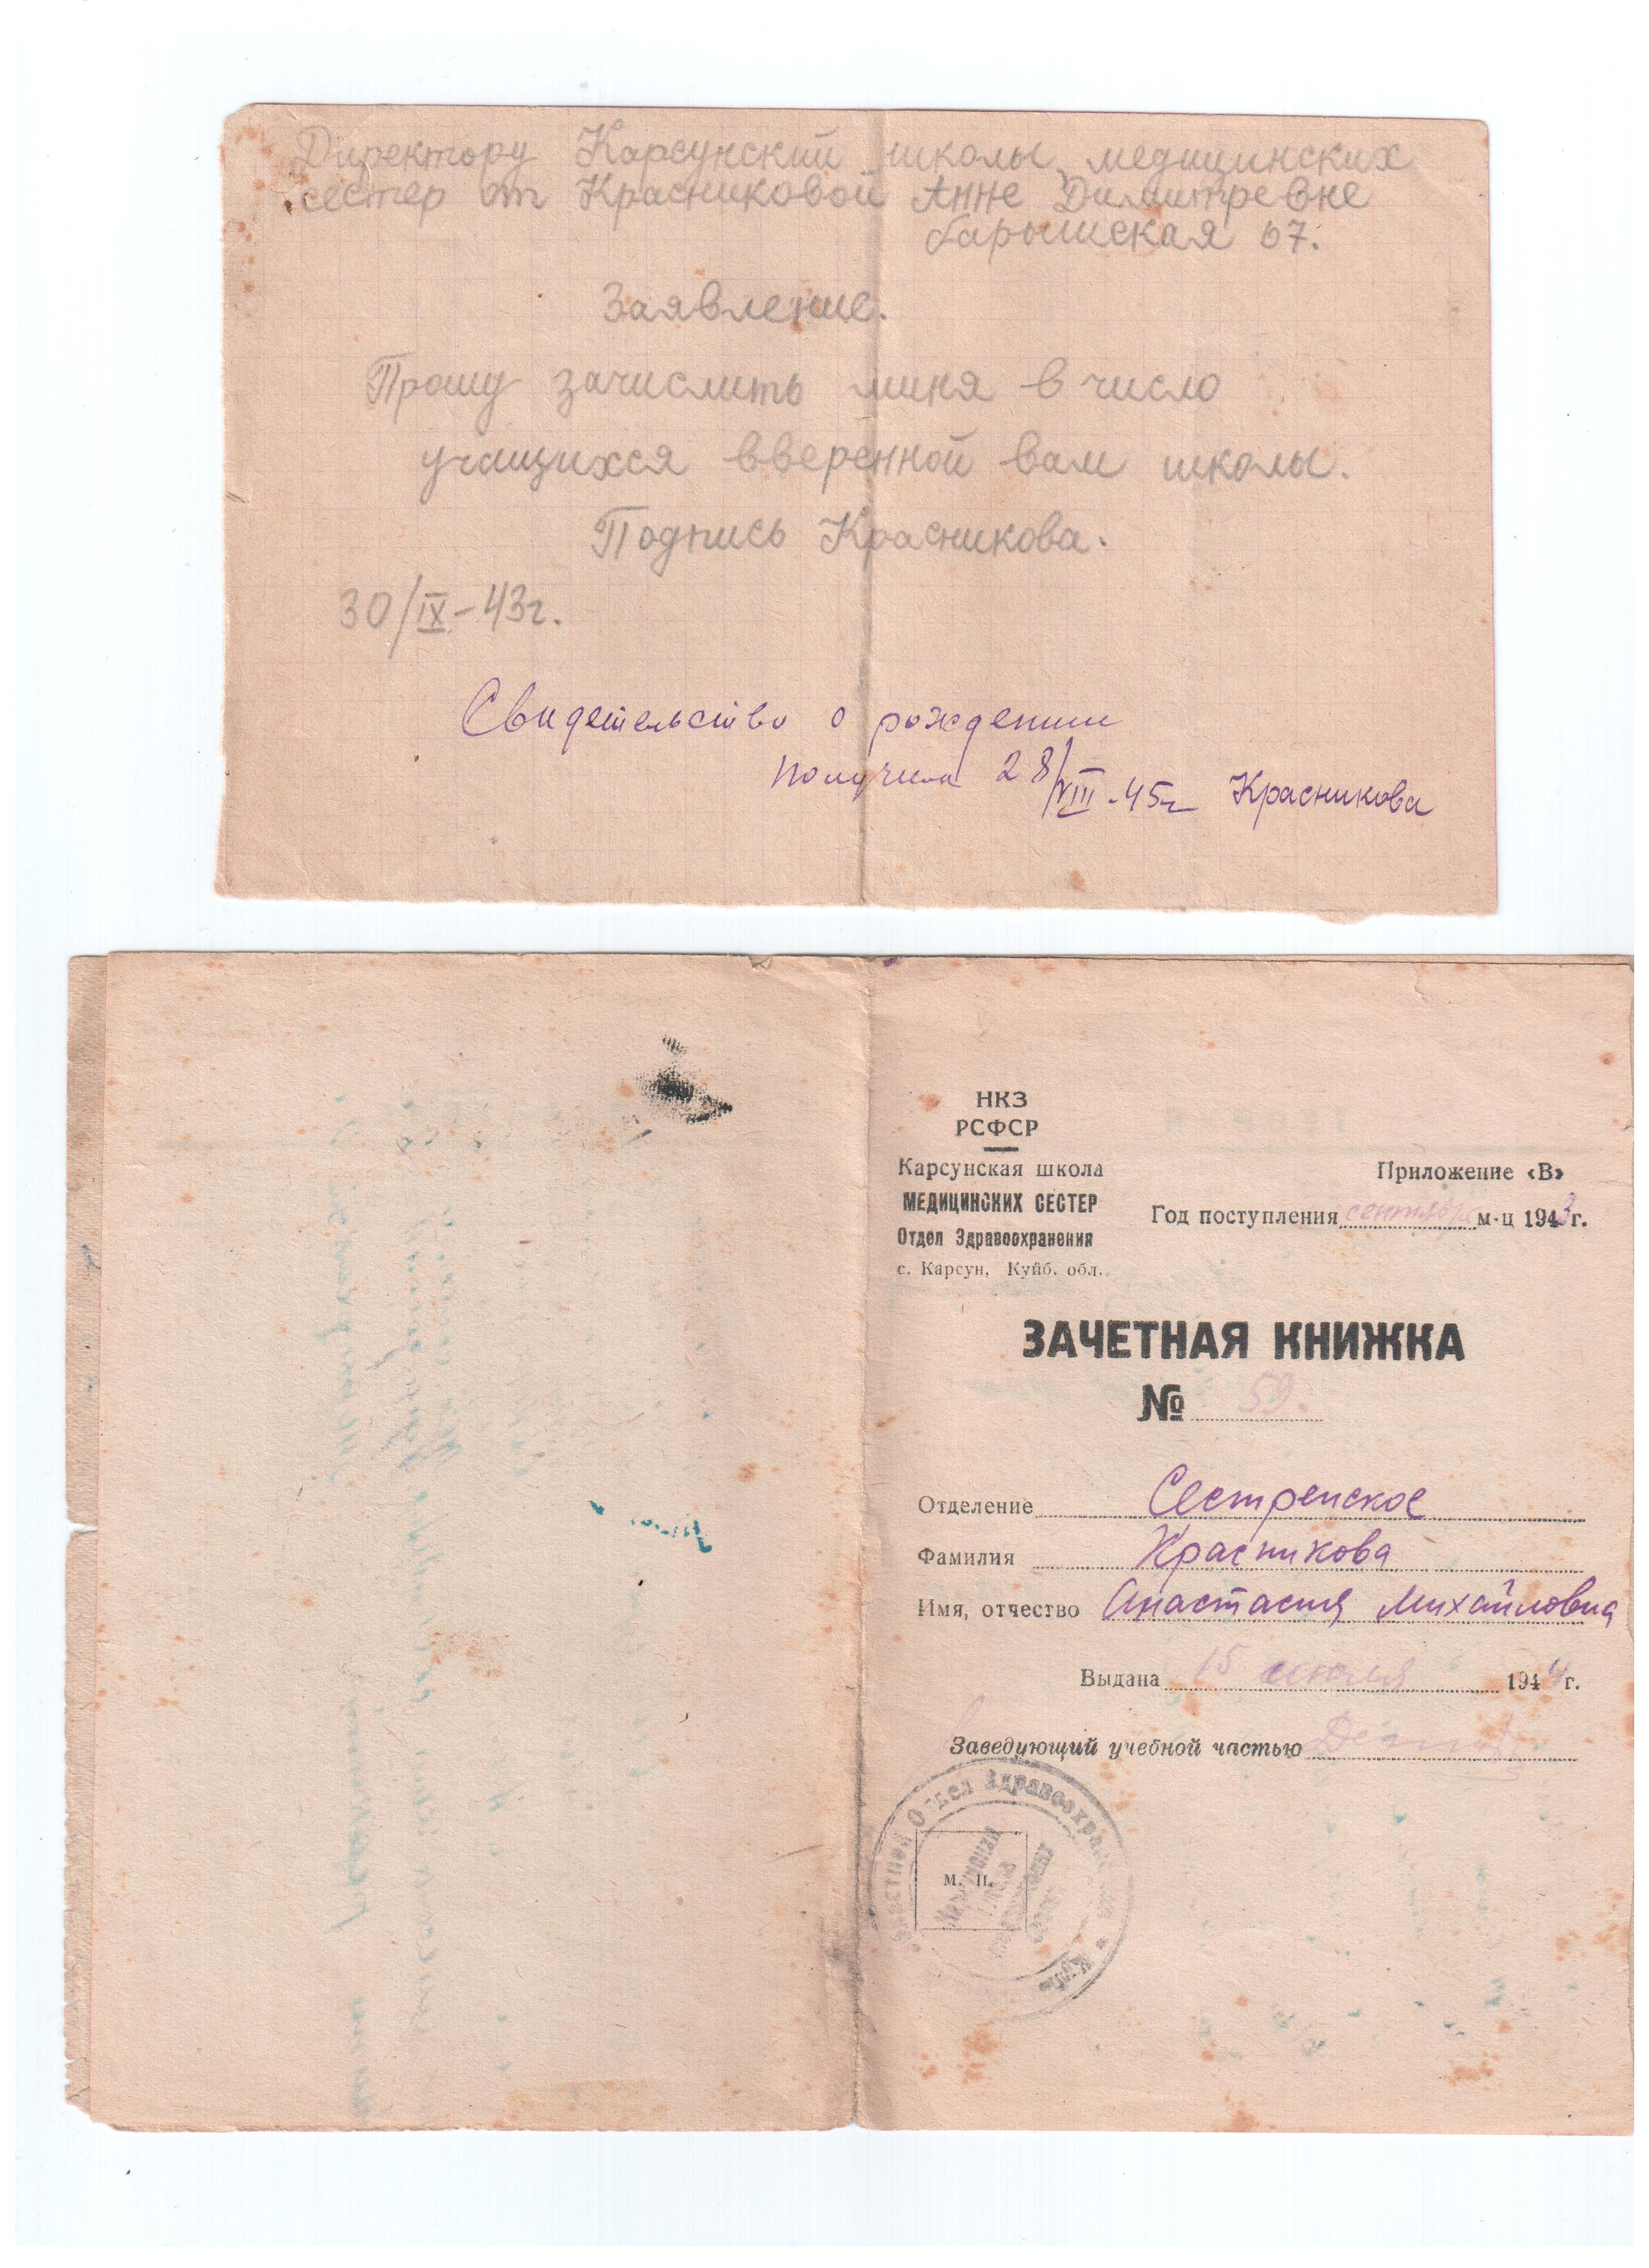 Директору Карсунский школы медицинских
сестер от Красниковой Анне Димитревне
барышская 67.
Заявление.
Прошу зачислить миня в число
учащихся вверенной вам школы.
Подпись Красникова.
30/IX-43г.
Свидетельство о рождении
получила 28/VIII-45г Красникова
НКЗ
РСФСР
Карсунская школа
МЕДИЦИНСКИХ СЕСТЕР
Отдел Здравоохранения
с. Карсун, Куйб. обл.
Приложение «В»
Год поступления сентябрь м-ц 1943 г.
ЗАЧЕТНАЯ КНИЖКА
№ 59.
Отделение Сестренское
Фамилия Красникова
Имя, отчество Анастасия Михайловна
Выдана 15 июля 1944 г.
Заведующий учебной частью
Отдел Здравоохранения
М. П.